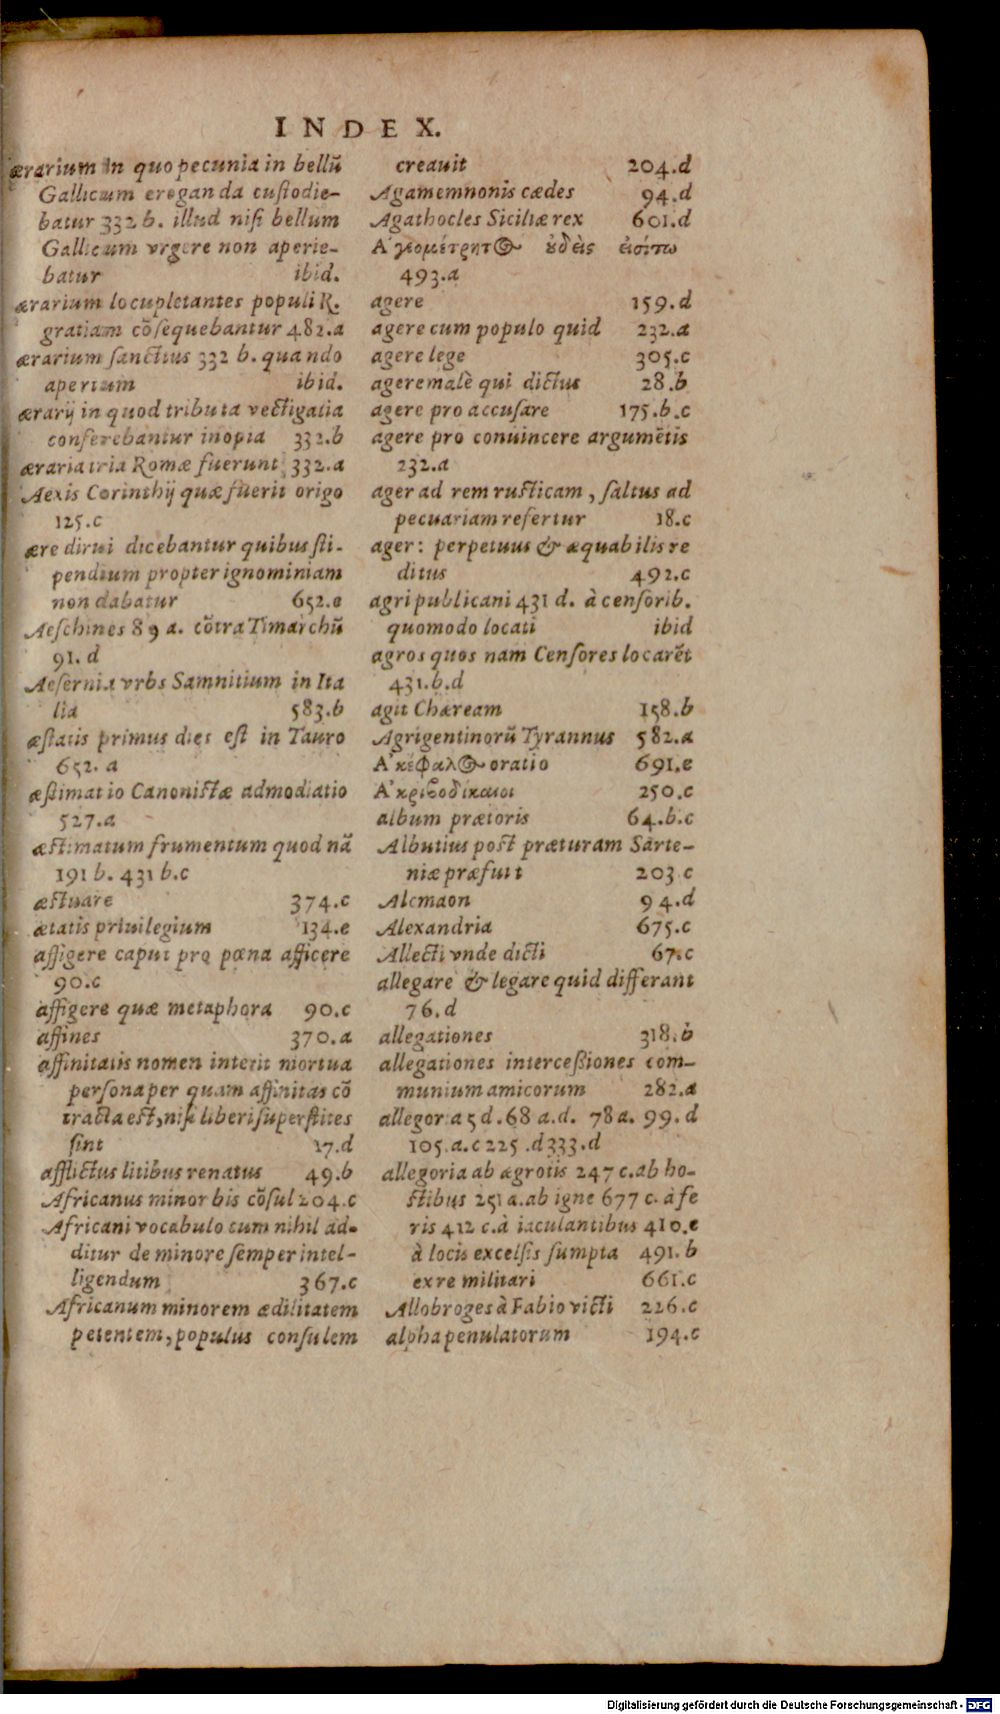 INDEX.
ærarium in quo pecunia in bellũ
Gallicum eroganda custodie-
batur 332 b. illud nisi bellum
Gallicum vrgere non aperie-
batur ibid.
ærarium locupletantes populi R.
gratiam cõsequebantur 482.a
ærarium sanctius 332 b. quando
apertum ibid.
ærarij in quod tributa vectigalia
conferebantur inopia 332.b
æraria tria Romæ fuerunt 332.a
Aexis Corinthij quæ fuerit origo
125.c
ære dirui dicebantur quibus sti-
pendium propter ignominiam
non dabatur 652.e
Aeschines 89 a. cõtra Timarchũ
91.d
Aesernia vrbs Samnitium in Ita
lia 583.b
æstatis primus dies est in Tauro
652.a
æstimatio Canonistæ admodiatio
527.a
æstimatum frumentum quod nã
191 b. 431 b.c
æstuare 374.c
ætatis priuilegium 134.e
affigere caput pro pœna afficere
90.c
affigere quæ metaphora 90.c
affines 370.a
affinitatis nomen interit mortua
persona per quam affinitas cõ
tracta est, nisi liberi superstites
sint 17.d
afflictus litibus renatus 49.b
Africanus minor bis cõsul 204.c
Africani vocabulo cum nihil ad-
ditur de minore semper intel-
ligendum 367.c
Africanum minorem ædilitatem
petentem, populus consulem
creauit 204.d
Agamemnonis cædes 94.d
Agathocles Siciliæ rex 601.d
Ἀγεομέτρητος οὐδεὶς εἰσίτω
493.a
agere 159.d
agere cum populo quid 232.a
agere lege 305.c
agere malè qui dictus 28.b
agere pro accusare 175.b.c
agere pro conuincere argumẽtis
232.a
ager ad rem rusticam, saltus ad
pecuariam refertur 18.c
ager: perpetuus & æquabilis re
ditus 492.c
agri publicani 431 d. à censorib.
quomodo locati ibid
agros quos nam Censores locarẽt
431.b.d
agit Chæream 158.b
Agrigentinorũ Tyrannus 582.a
Ἀκέφαλος oratio 691.e
Ἀκριβοδίκαιοι 250.c
album prætoris 64.b.c
Albutius post præturam Sarte-
niæ præfuit 203 c
Alcmæon 94.d
Alexandria 675.c
Allecti vnde dicti 67.c
allegare & legare quid differant
76.d
allegationes 318.b
allegationes intercessiones com-
munium amicorum 282.a
allegor. a 5 d. 68 a.d. 78 a. 99.d
105.a.c 225.d 333.d
allegoria ab ægrotis 247 c. ab ho-
stibus 251 a. ab igne 677 c. à fe
ris 412 c. à iaculantibus 410.e
à locis excelsis sumpta 491.b
ex re militari 661.c
Allobroges à Fabio victi 226.c
alpha penulatorum 194.c
Digitalisierung gefördert durch die Deutsche Forschungsgemeinschaft - DFG